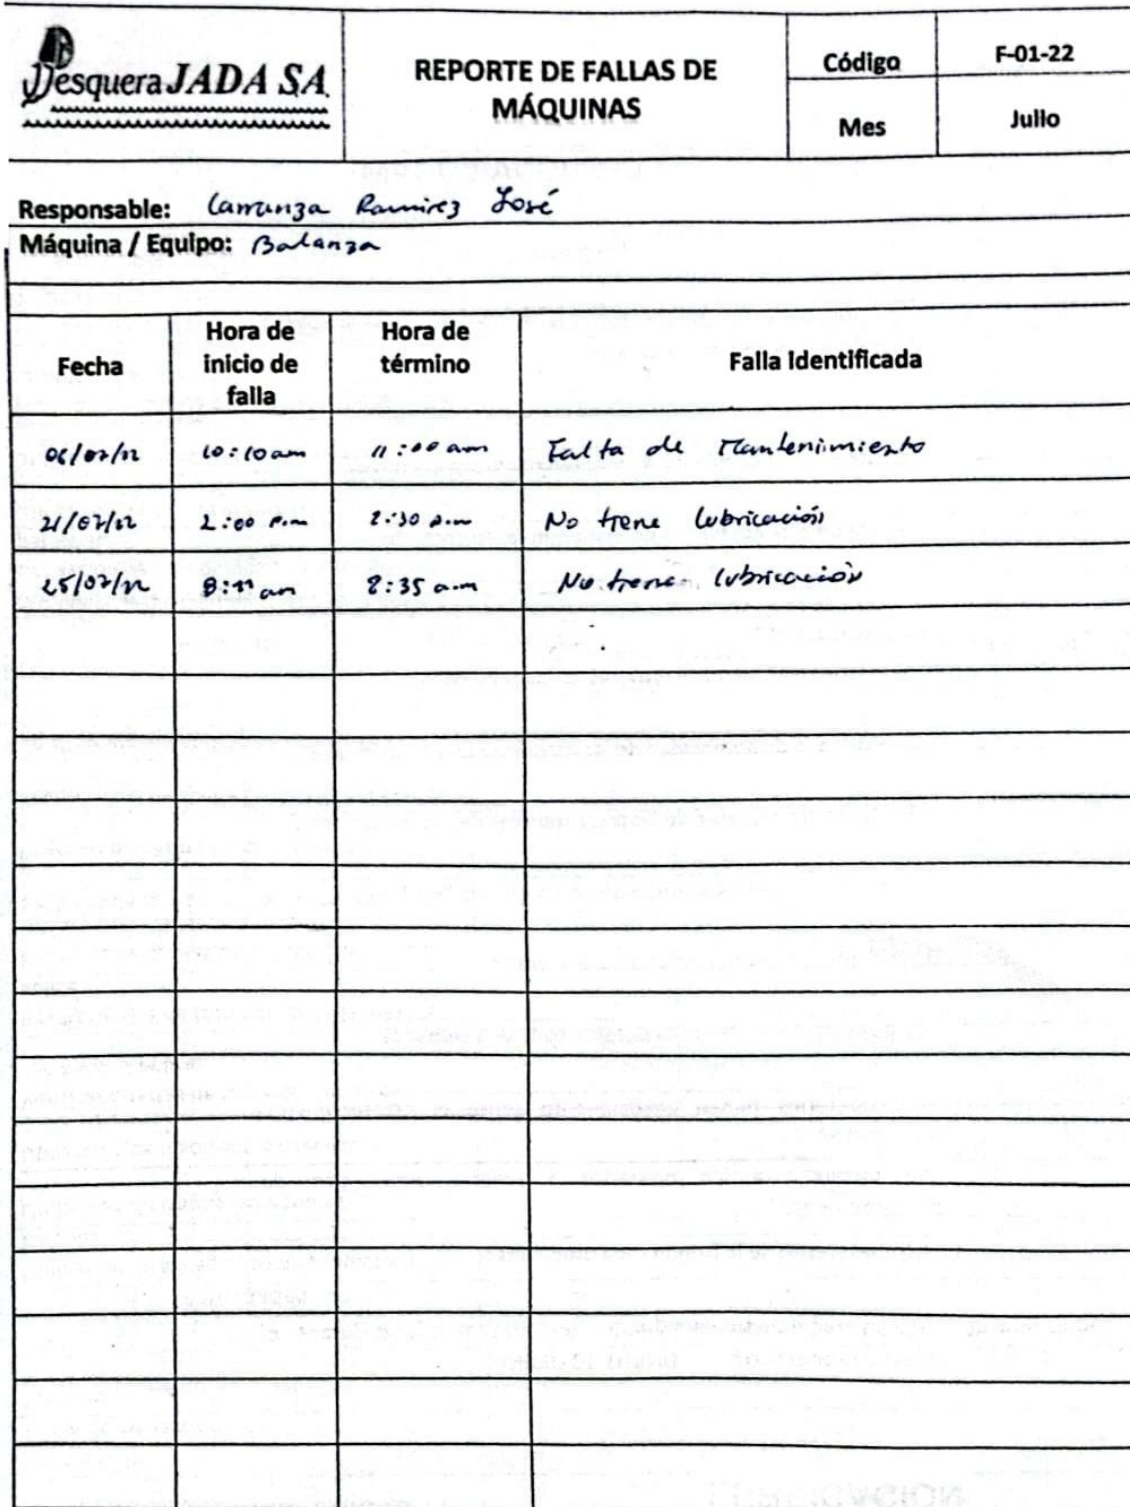 Pesquera JADA SA.
REPORTE DE FALLAS DE
MÁQUINAS
Código F-01-22
Mes Julio
Responsable: Carranza Ramirez José
Máquina / Equipo: Balanza
Fecha Hora de inicio de falla Hora de término Falla Identificada
06/07/22 10:10 am 11:00 am Falta de Mantenimiento
21/07/22 2:00 p.m 2:30 p.m No tiene lubricación
25/07/22 am 8:35 a.m No tiene lubricación